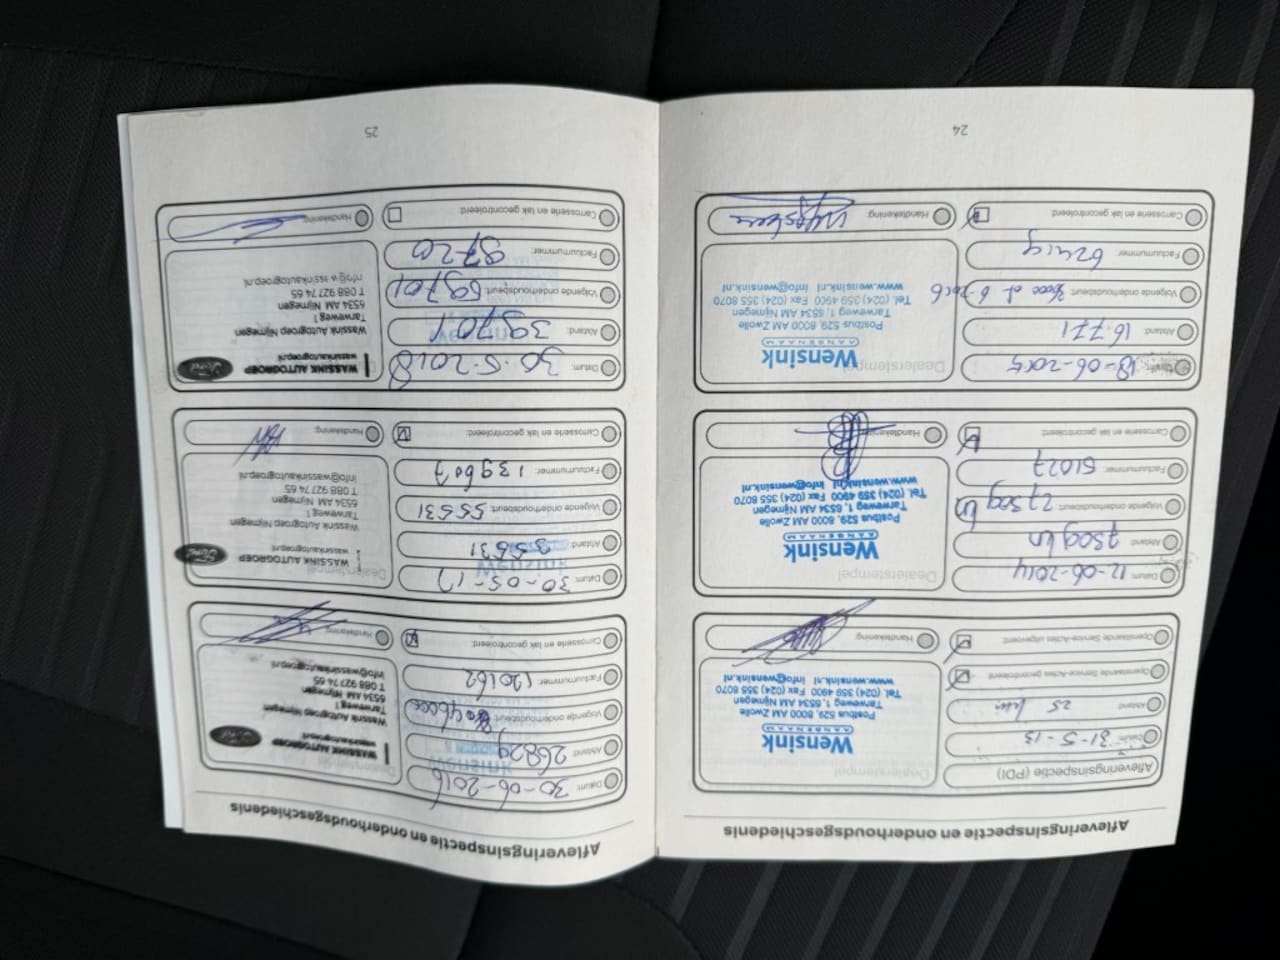 Afleveringsinspectie en onderhoudsgeschiedenis
Afleveringsinspectie (PDI)
Datum: 31-5-13
Afstand: 25 km
Openstaande Service-Acties gecontroleerd:
Openstaande Service-Acties uitgevoerd:
Dealerstempel
Wensink
AANGENAAM
Postbus 529, 8000 AM Zwolle
Tarweweg 1, 6534 AM Nijmegen
Tel. (024) 359 4900 Fax (024) 355 8070
www.wensink.nl info@wensink.nl
Handtekening:
Datum: 12-06-2014
Afstand: 7309 km
Volgende onderhoudsbeurt: 27309 km
Factuurnummer: 51027
Carrosserie en lak gecontroleerd:
Dealerstempel
Wensink
AANGENAAM
Postbus 529, 8000 AM Zwolle
Tarweweg 1, 6534 AM Nijmegen
Tel. (024) 359 4900 Fax (024) 355 8070
www.wensink.nl info@wensink.nl
Handtekening:
Datum: 18-06-2015
Afstand: 16.771
Volgende onderhoudsbeurt: of 6-2016
Factuurnummer:
Carrosserie en lak gecontroleerd:
Dealerstempel
Wensink
AANGENAAM
Postbus 529, 8000 AM Zwolle
Tarweweg 1, 6534 AM Nijmegen
Tel. (024) 359 4900 Fax (024) 355 8070
www.wensink.nl info@wensink.nl
Handtekening:
24
Afleveringsinspectie en onderhoudsgeschiedenis
Datum: 30-06-2016
Afstand: 26829
Volgende onderhoudsbeurt:
Factuurnummer: 120162
Carrosserie en lak gecontroleerd:
Dealerstempel
WASSINK AUTOGROEP
wassinkautogroep.nl
Ford
Wassink Autogroep Nijmegen
Tarweweg 1
6534 AM Nijmegen
T 088 927 74 65
info@wassinkautogroep.nl
Handtekening:
Datum: 30-05-17
Afstand: 35531
Volgende onderhoudsbeurt: 55531
Factuurnummer: 139607
Carrosserie en lak gecontroleerd:
Dealerstempel
WASSINK AUTOGROEP
wassinkautogroep.nl
Ford
Wassink Autogroep Nijmegen
Tarweweg 1
6534 AM Nijmegen
T 088 927 74 65
info@wassinkautogroep.nl
Handtekening:
Datum: 30-5-2018
Afstand: 39701
Volgende onderhoudsbeurt: 59701
Factuurnummer: 9720
Carrosserie en lak gecontroleerd:
WASSINK AUTOGROEP
wassinkautogroep.nl
Ford
Wassink Autogroep Nijmegen
Tarweweg 1
6534 AM Nijmegen
T 088 927 74 65
info@wassinkautogroep.nl
Handtekening:
25